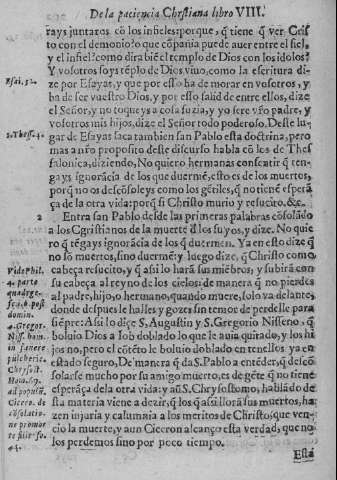 De la paciencia Christiana libro VIII.
rays juntaros cō los infieles: porque, q̃ tiene q̃ ver Cris
to con el demonio? o que cōpania puede auer entre el fiel,
y el infiel? como dira biē el templo de Dios con los idolos?
Y vosotros soys tēplo de Dios viuo, como la escritura di-
Esai. 52.
ze por Esayas, y que por esso ha de morar en vosotros, y
ha de ser vuestro Dios, y por esso salid de entre ellos, dize
el Señor, y no toqueys a cosa suzia, y yo sere vr̃o padre, y
vosotros mis hijos, dize el Señor todo poderoso. Deste lu-
1. Thess. 4.
gar de Esayas saca tambien san Pablo esta doctrina, pero
mas a nr̃o proposito deste discurso habla cō los de Thes
salonica, diziendo, No quiero hermanos consentir q̃ ten-
gays ignorācia de los que duermē, esto es de los muertos,
porq̃ no os descōsoleys como los gētiles, q̃ no tienē esperā
ça de la otra vida: porq̃ si Christo murio y resucito, &c.
2
Entra san Pablo desde las primeras palabras cōsolādo
a los Cgristianos de la muerte d̃ los suyos, y dize. No quie
ro q̃ tēgays ignorācia de los q̃ duermen. Ya en esto dize q̃
no sō muertos, sino duermē: y luego dize, q̃ Christo como
Vide Phil.
cabeça resucito, y q̃ assi lo harā sus miēbros, y subirā con
4. parte
su cabeça al reyno de los cielos: de manera q̃ no pierdes
quadrge-
al padre, hijo, o hermano, quando muere, solo va delante,
donde despues le halles y gozes sin temor de perdelle para
domin.
siēpre: Assi lo dize S. Augustin y S. Gregorio Nisseno, q̃
4. Gregor.
boluio Dios a Iob doblado lo que le auia quitado, y los hi
Niss. hom.
jos no, pero el cōtēto le boluio doblado en tenellos ya en
pulcheria.
estado seguro, De manera q̃ da S. Pablo a entēder, q̃ descō
Chrysost.
solarse mucho por su amigo muerto, es de gēte q̃ no tiene
Hom. 69.
esperāça dela otra vida: y aũ S. Chrysostomo, hablādo de
ad popul.
sta materia viene a dezir, q̃ los q̃ assi llorā sus muertos, ha-
Cicero. de
zen injuria y calumnia a los meritos de Christo, que ven-
cōsolatio-
cio la muerte, y aun Ciceron alcanço esta verdad, que no
los perdemos sino por poco tiempo.
Esta